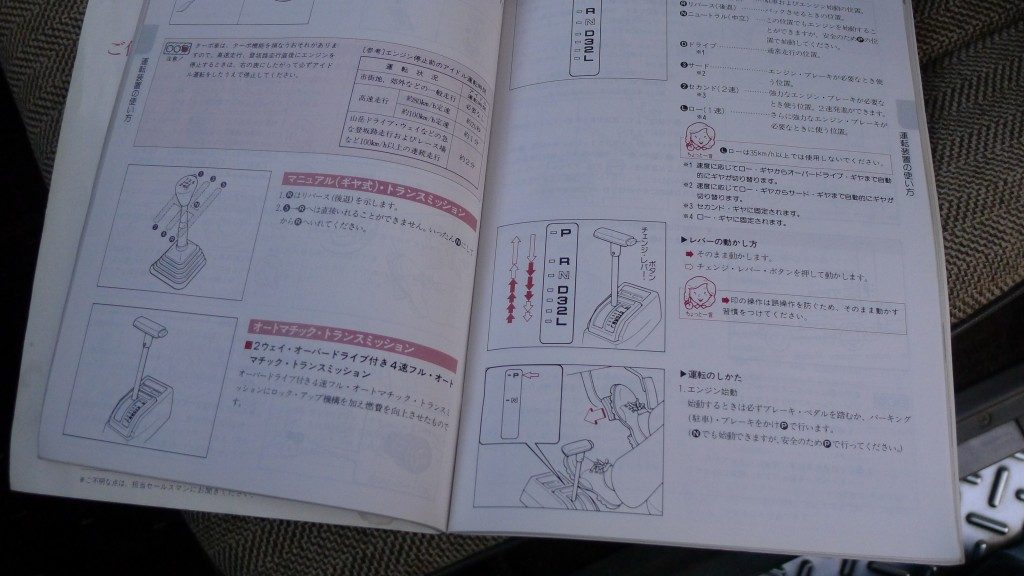 ターボ車は、ターボ機能を損なうおそれがありますので、高速走行、登坂路走行直後にエンジンを
停止するときは、右の表にしたがって必ずアイドル運転をしたうえで停止してください。
注意
運転装置の使い方
【参考】エンジン停止前のアイドル運転時間
運転状況
市街地、郊外などの一般走行
必要なし
高速走行
約80km/h定速
約100km/h定速
約1分
山岳ドライブ・ウェイなどの急な登坂路走行およびレース場など100km/h以上の連続走行
約2分
マニュアル(ギヤ式)・トランスミッション
1. Rはリバース(後退)を示します。
2. 5→Rへは直接いれることができません。いったんNにして
からRへいれてください。
オートマチック・トランスミッション
■2ウェイ・オーバードライブ付き4速フル・オート
マチック・トランスミッション
オーバードライブ付き4速フル・オートマチック・トランスミ
ッションにロック・アップ機構を加え燃費を向上させたもので
す。
※ご不明な点は、担当セールスマンにお聞きください
R
N
D
3
2
L
Rリバース(後退)
バックさせるときの位置。
Nニュートラル(中立)
この位置でもエンジンを始動すると
とができますが、安全のためPの位
置で始動してください。
Dドライブ
※1
通常走行の位置。
3サード
※2
エンジン・ブレーキが必要なとき使
う位置。
2セカンド(2速)
※3
強力なエンジン・ブレーキが必要な
とき使う位置。2速発進ができます。
Lロー(1速)
※4
さらに強力なエンジン・ブレーキが
必要なときに使う位置。
ちょっと一言
Lローは35km/h以上では使用しないでください。
※1 速度に応じてロー・ギヤからオーバードライブ・ギヤまで自動
的にギヤが切り替ります。
※2 速度に応じてロー・ギヤからサード・ギヤまで自動的にギヤが
切り替ります。
※3 セカンド・ギヤに固定されます。
※4 ロー・ギヤに固定されます。
運転装置の使い方
P
R
N
D
3
2
L
チェンジ・レバー
ボタン
▶レバーの動かし方
そのまま動かします。
チェンジ・レバー・ボタンを押して動かします。
ちょっと一言
印の操作は誤操作を防ぐため、そのまま動かす
習慣をつけてください。
P
N
▶運転のしかた
1.エンジン始動
始動するときは必ずブレーキ・ペダルを踏むか、パーキング
(駐車)・ブレーキをかけPで行います。
(Nでも始動できますが、安全のためPで行ってください。)